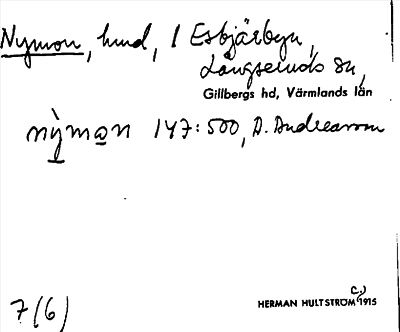 Nymon, hund, 1 Esbjärbyn,
Långseruds sn,
Gillbergs hd, Värmlands län
nỳman 147:500, D. Andreasson
7(6)
HERMAN HULTSTRÖM c.) 1915